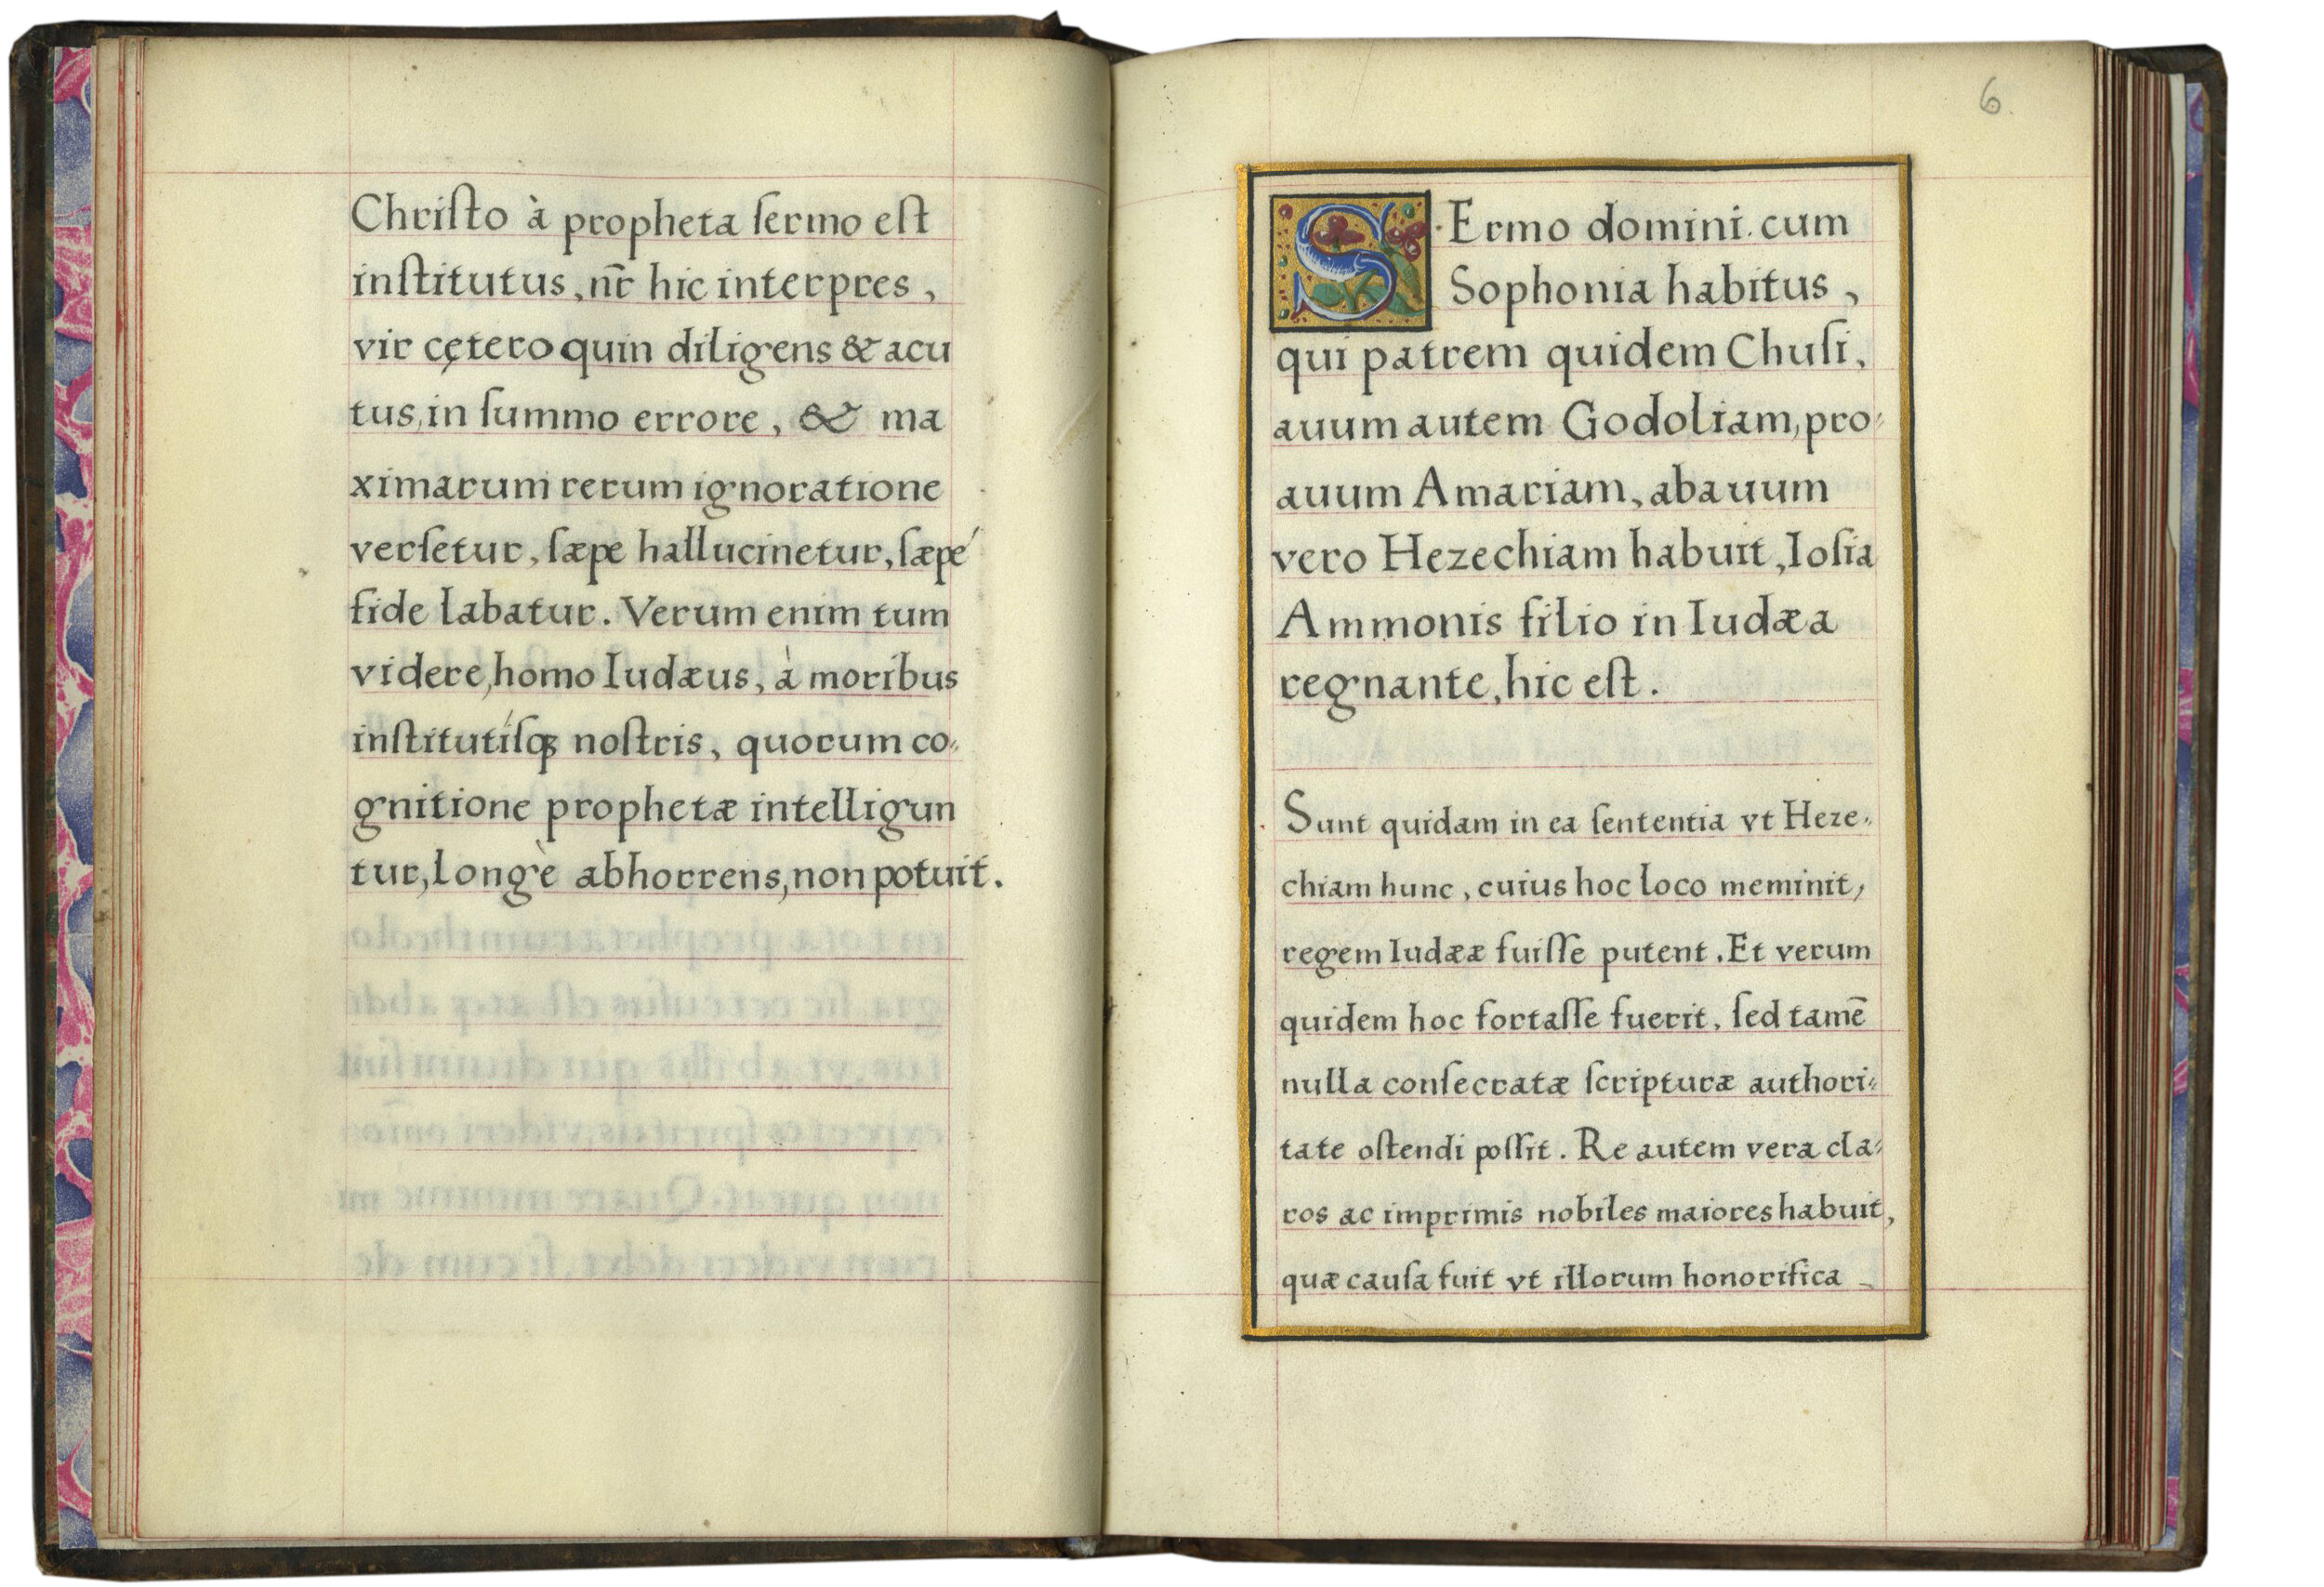 Chriſto à propheta ſermo eſt
inſtitutus, nr̄ hic interpres,
vir cęteroquin diligens & acu
tus, in ſummo errore, & ma
ximarum rerum ignoratione
verſetur, ſæpe hallucinetur, ſæpé
fide labatur. Verum enim tum
videre, homo Iudæus, à moribus
inſtitutíſqꝫ noſtris, quorum co⸗
gnitione prophetæ intelligun
tur, longè abhorrens, non potuit.
6.
SErmo domini cum
Sophonia habitus,
qui patrem quidem Chuſi,
auum autem Godoliam, pro⸗
auum Amariam, abauum
vero Hezechiam habuit, Ioſia
Ammonis filio in Iudæa
regnante, hic eſt.
Sunt quidam in ea ſententia vt Heze⸗
chiam hunc, cuius hoc loco meminit,
regem Iudææ fuiſſe putent. Et verum
quidem hoc fortaſſe fuerit, ſed tamē
nulla conſecratæ ſcripturæ authori⸗
tate oſtendi poſſit. Re autem vera cla⸗
ros ac imprimis nobiles maiores habuit,
quæ cauſa fuit vt illorum honorifica